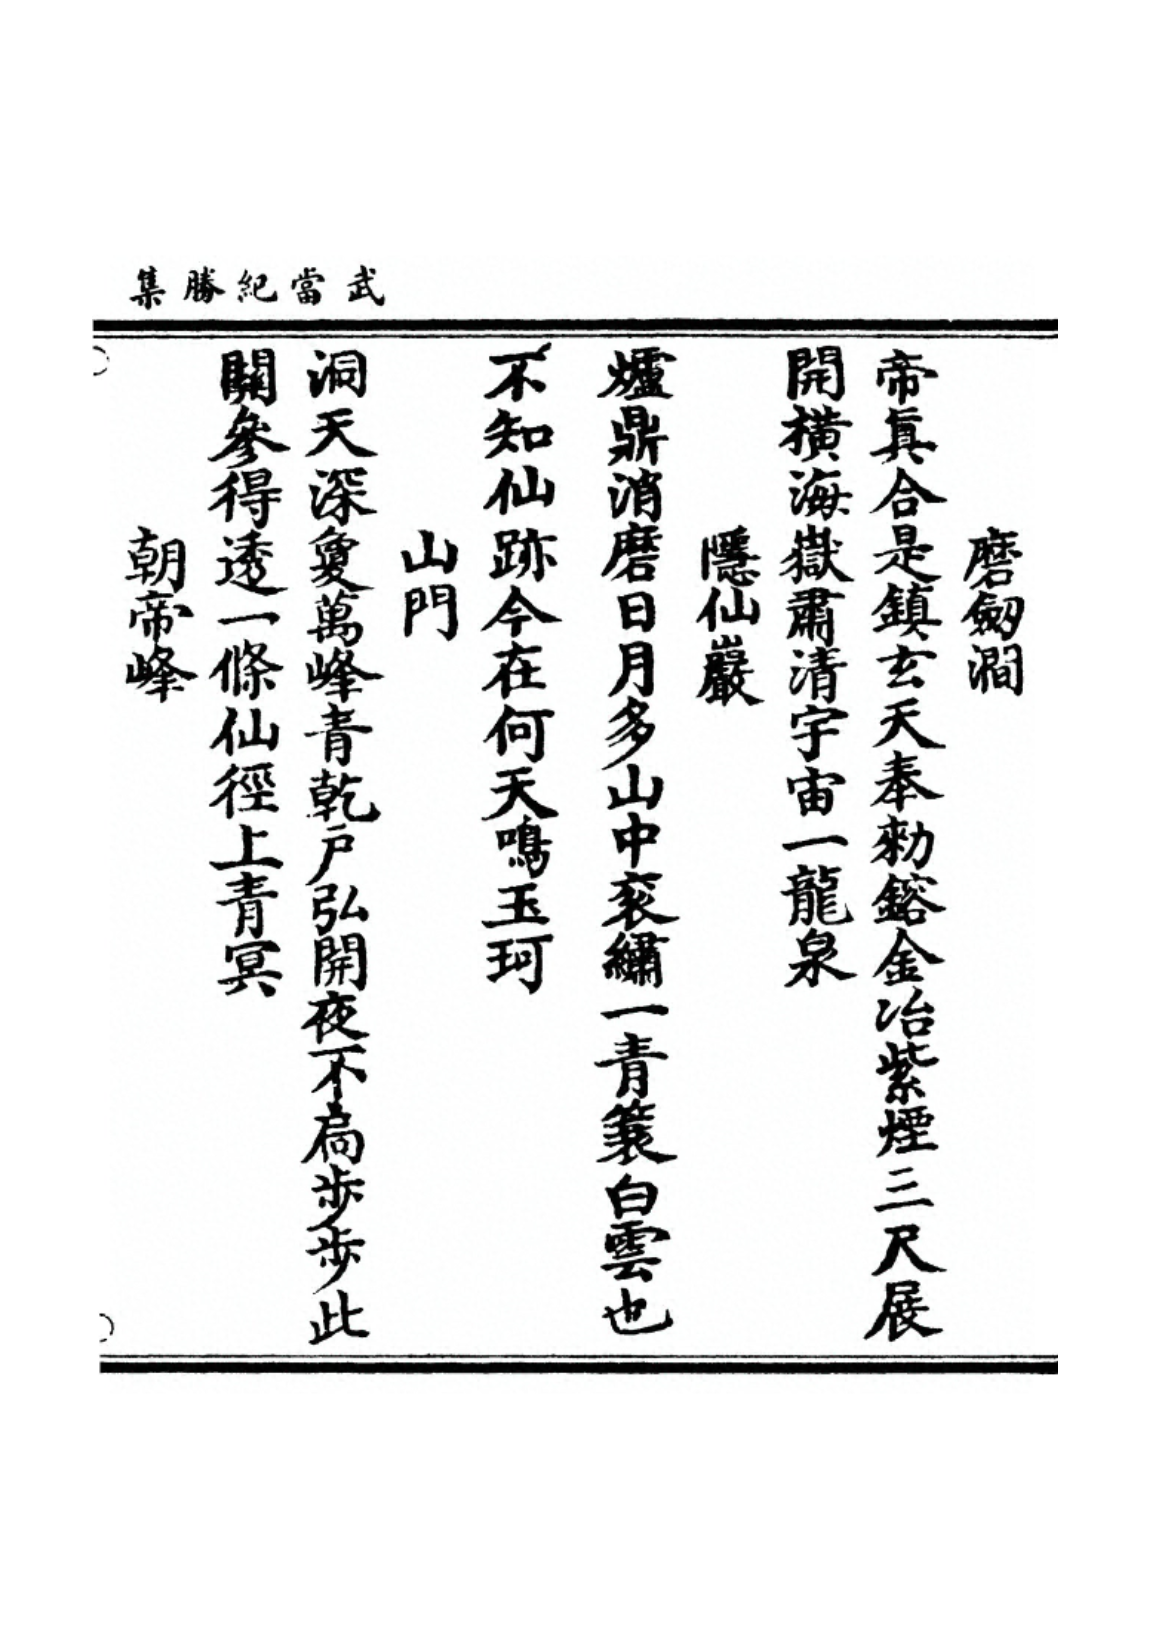 武當紀勝集
磨劒澗
帝眞合是鎮玄天奉勑鎔金冶紫煙三尺展
開橫海嶽肅清宇宙一龍泉
隱仙巖
爐鼎消磨日月多山中衮繡一青簑白雲也
不知仙跡今在何天鳴玉珂
山門
洞天深夐萬峰青乾戶弘開夜不扃步步此
關參得透一條仙徑上青冥
朝帝峰